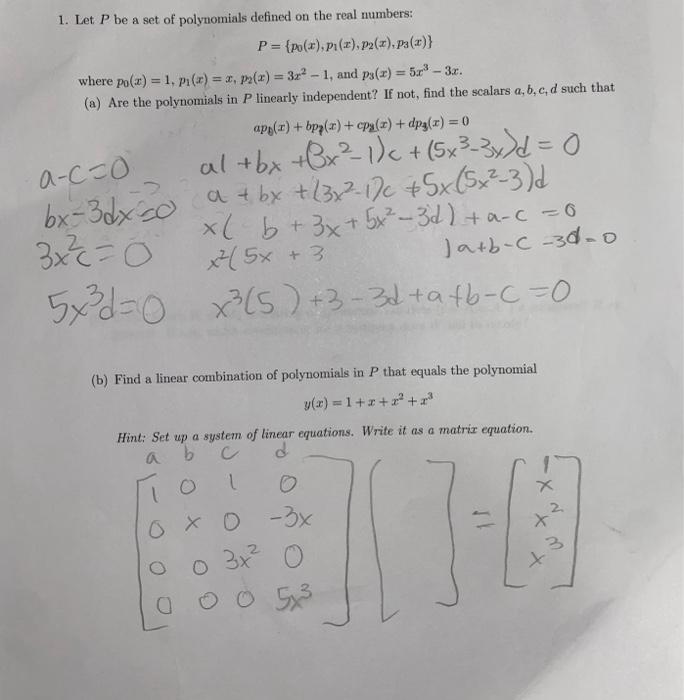 1. Let P be a set of polynomials defined on the real numbers:
P = {p₀(x), p₁(x), p₂(x), p₃(x)}
where p₀(x) = 1, p₁(x) = x, p₂(x) = 3x² − 1, and p₃(x) = 5x³ − 3x.
(a) Are the polynomials in P linearly independent? If not, find the scalars a, b, c, d such that
ap₀(x) + bp₁(x) + cp₂(x) + dp₃(x) = 0
a-c=0
a1 + bx + (3x²-1)c + (5x³-3x)d = 0
a + bx + (3x²-1)c + 5x(5x²-3)d
bx-3dx=0
x( b + 3x + 5x² - 3d) + a-c = 0
3x²c = 0
x²(5x + 3
)a+b-c-3d=0
5x³d=0
x³(5)+3-3d+a+b-c=0
(b) Find a linear combination of polynomials in P that equals the polynomial
y(x) = 1 + x + x² + x³
Hint: Set up a system of linear equations. Write it as a matrix equation.
a b c d
[1 0 1 0 ] [ ] = [1
0 x 0 -3x
x
0 0 3x² 0
x²
0 0 0 5x³
x³]